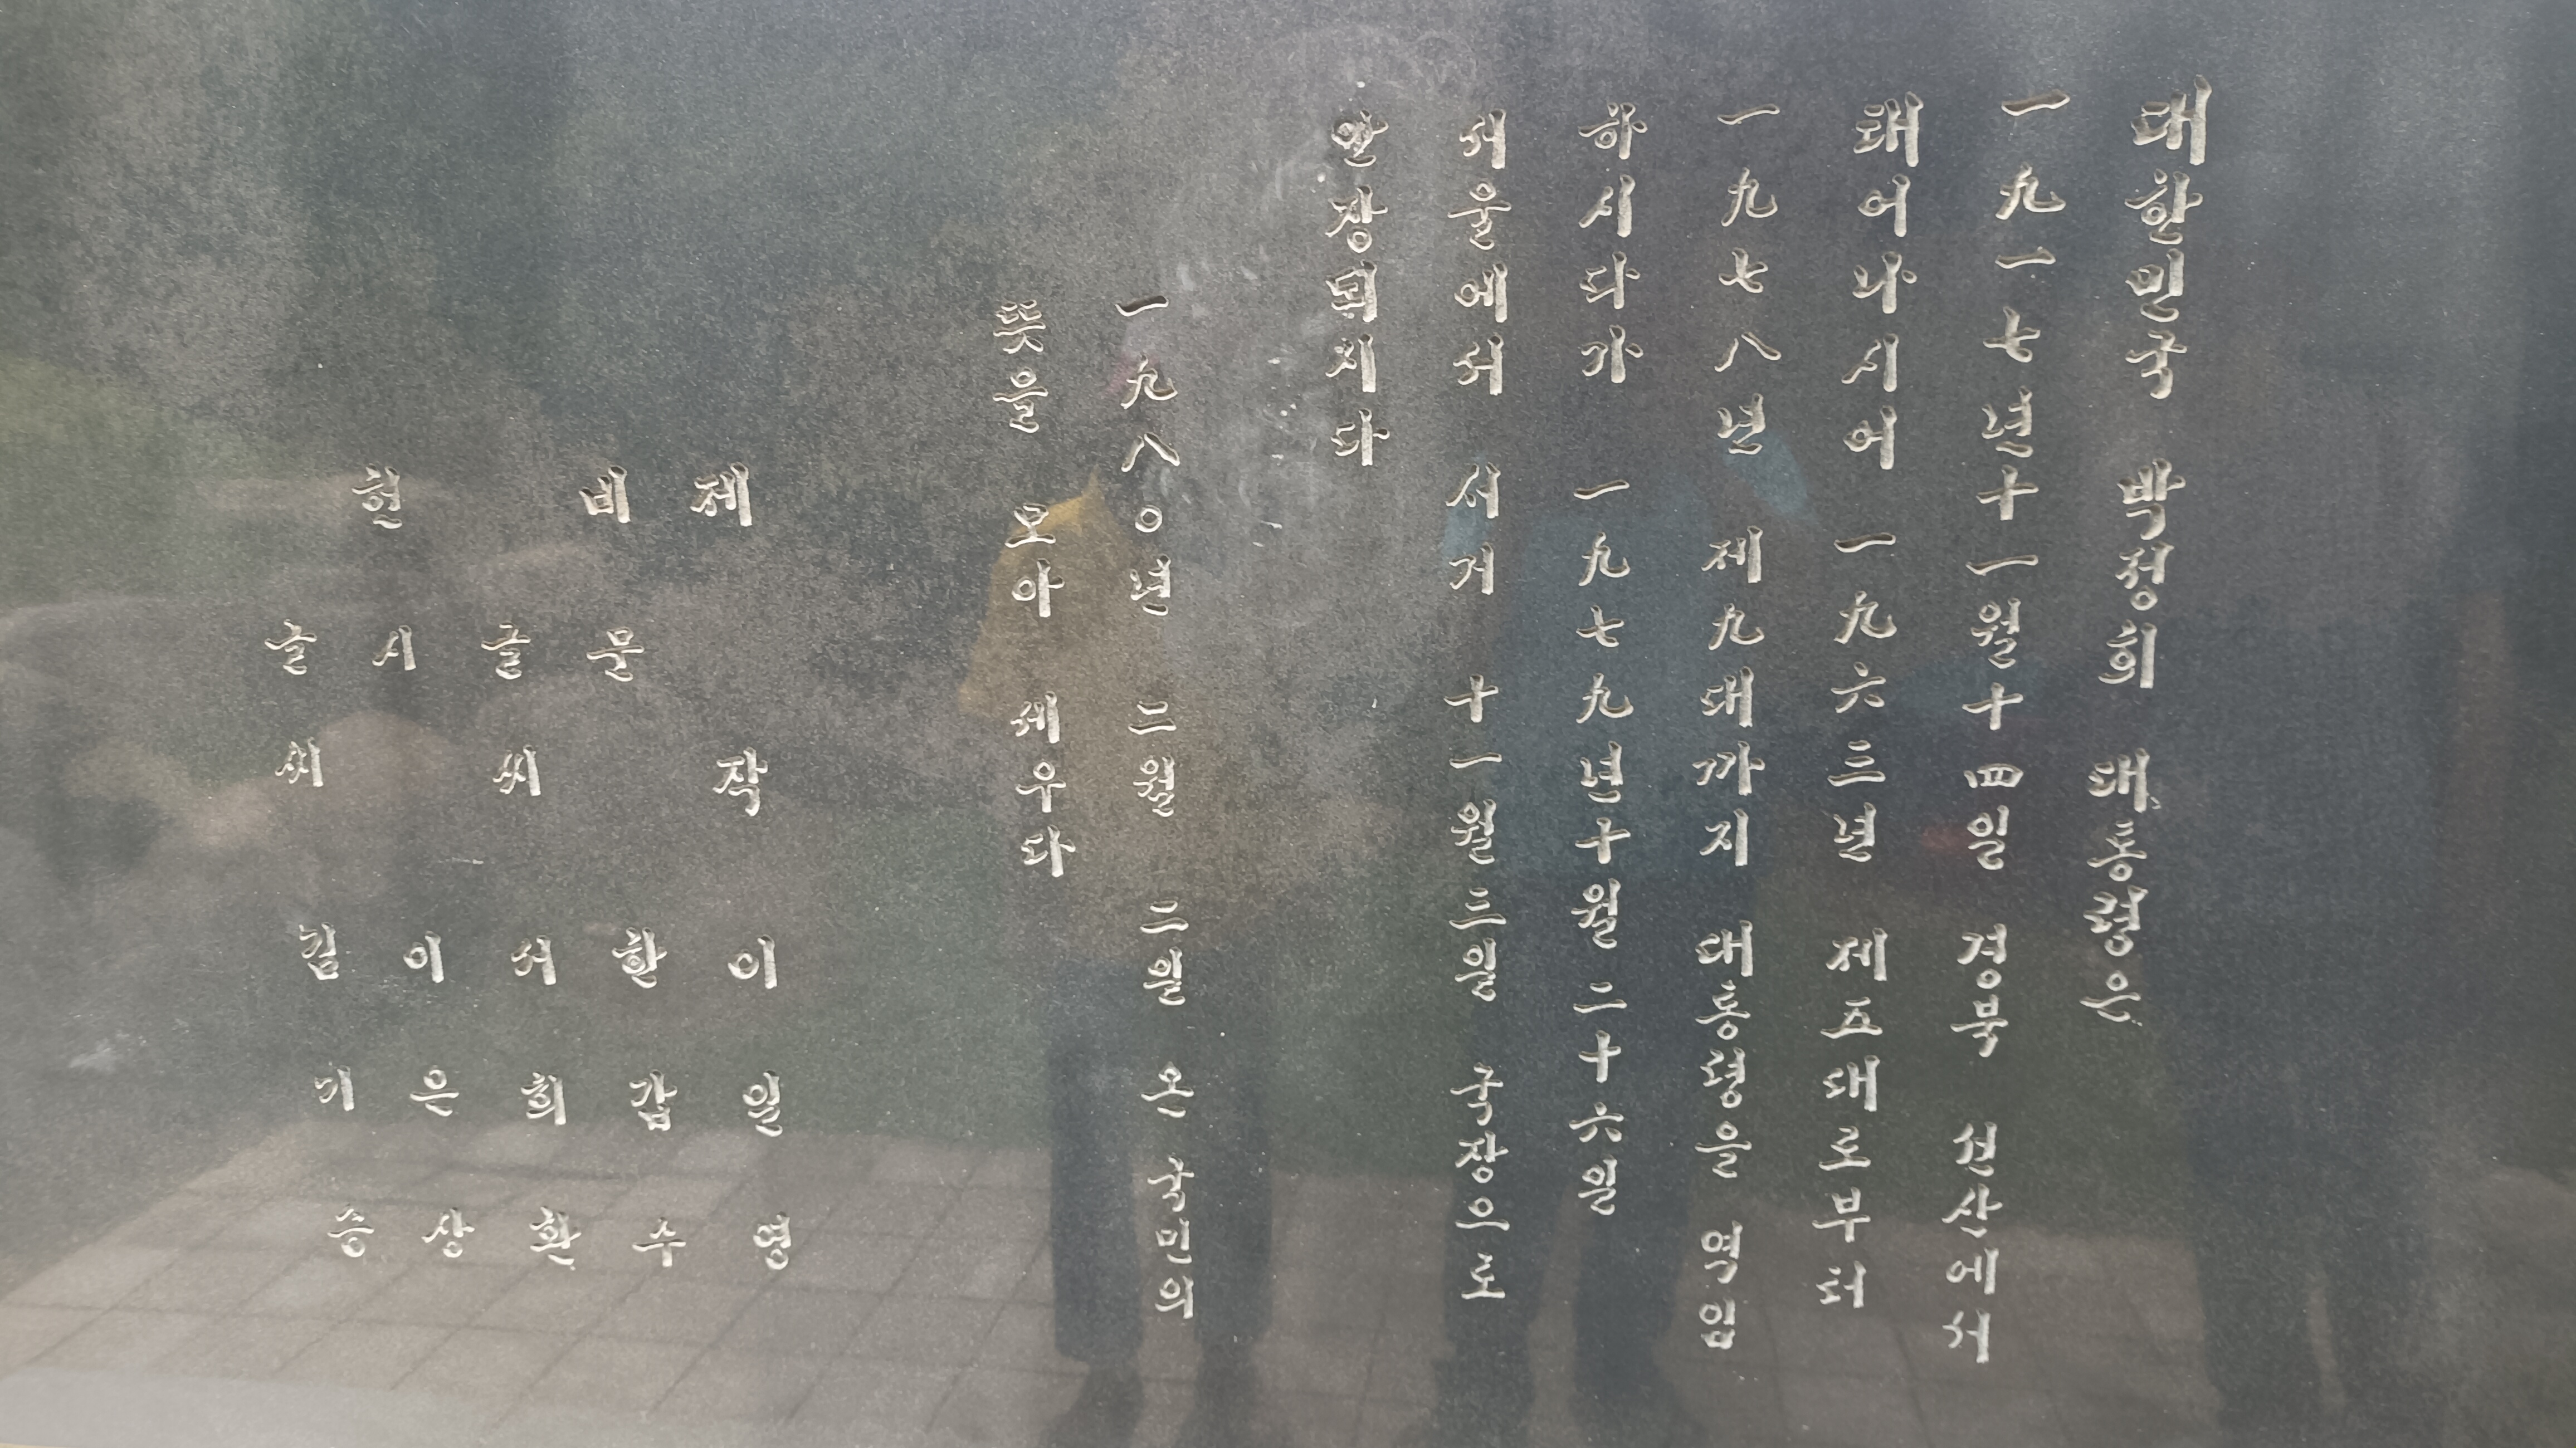 대한민국 박정희 대통령은
一九一七년十一월十四일 경북 선산에서
태어나시어 一九六三년 제五대로부터
一九七八년 제九대까지 대통령을 역임
하시다가 一九七九년十월二十六일
서울에서 서거 十一월三일 국장으로
안장되시다
一九八○년 二월 二일 온 국민의
뜻을 모아 세우다
제 작 이일영
비문 한갑수
글씨 서희환
헌시 이은상
글씨 김기승